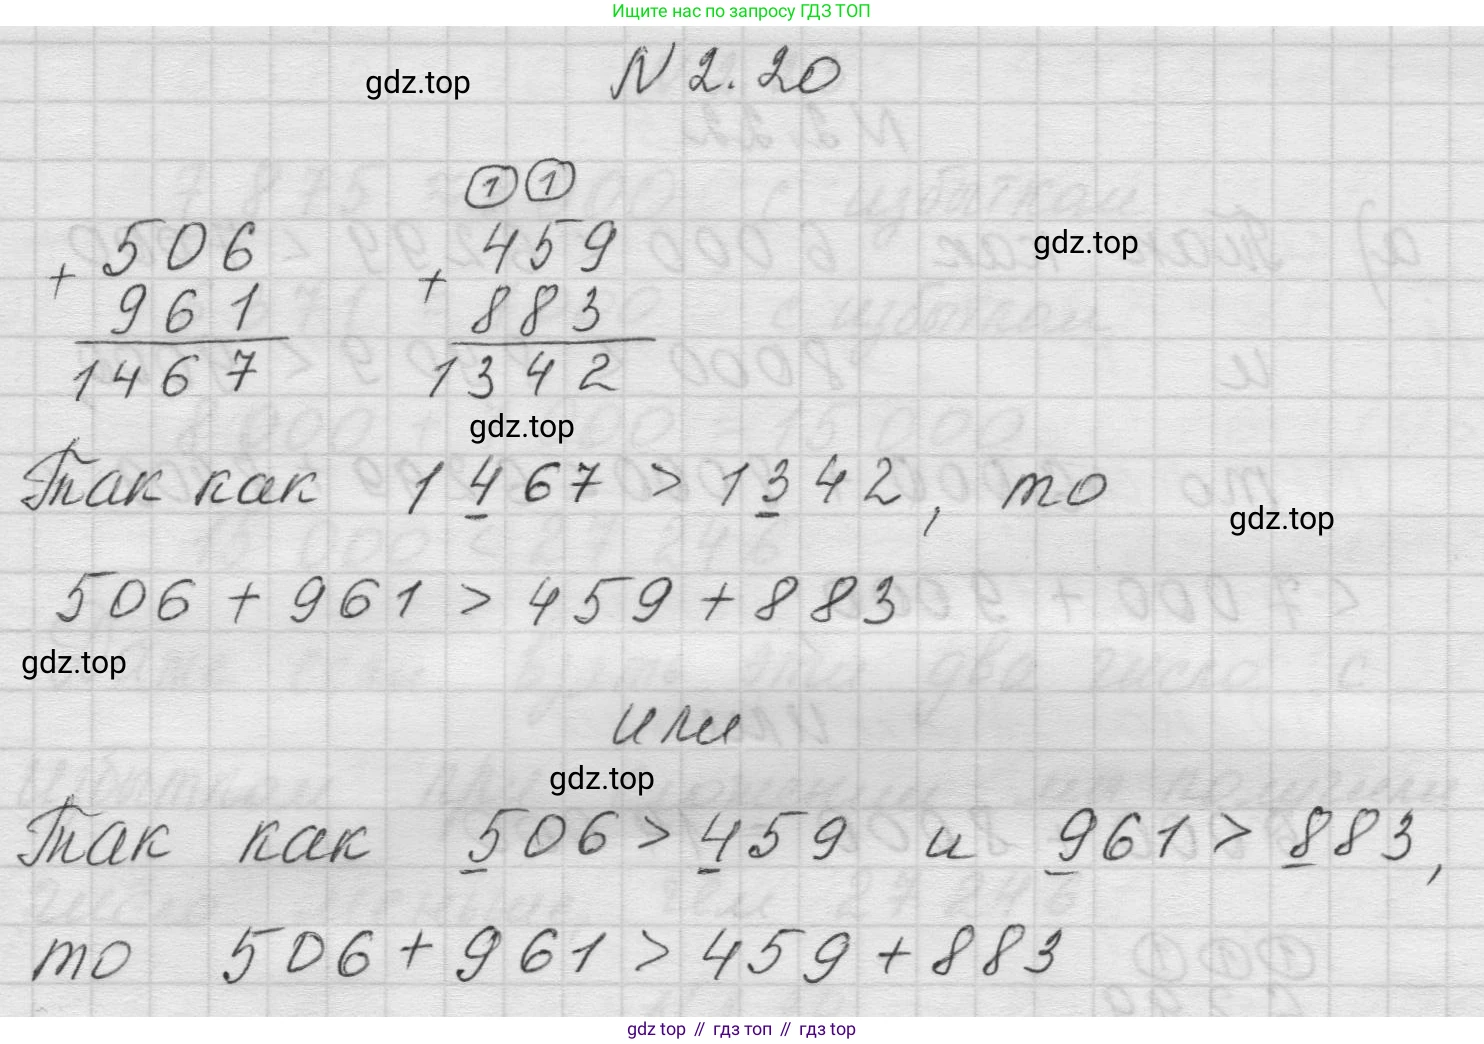 Ищите нас по запросу ГДЗ ТОП
N 2.20
gdz.top
1 1
506 459
+ +
961 883
1467 1342
gdz.top
gdz.top
Так как 1467 > 1342, то
gdz.top
506 + 961 > 459 + 883
gdz.top
или
gdz.top
Так как 506 > 459 и 961 > 883,
то 506 + 961 > 459 + 883
gdz top // гдз топ // gdz top